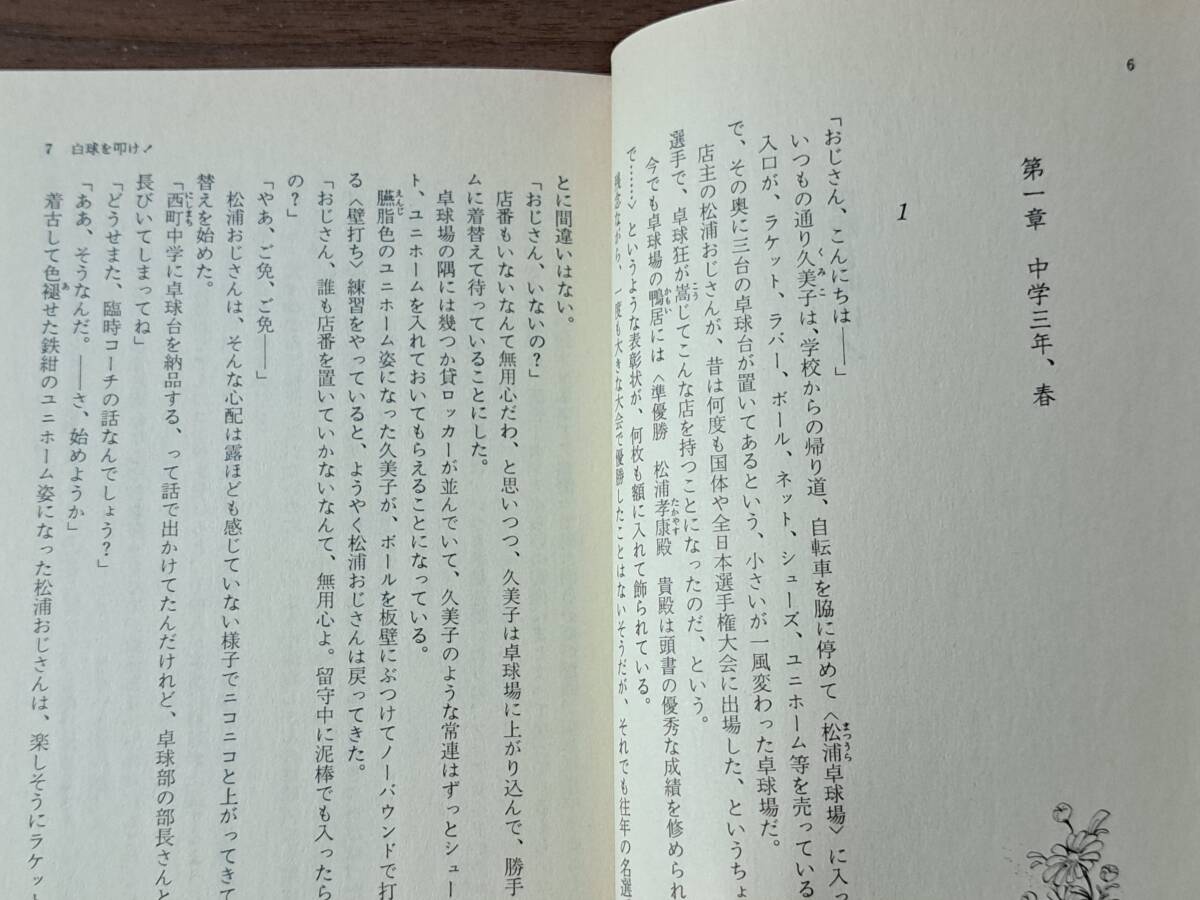 6
第一章　中学三年、春
1
「おじさん、こんにちは――」
いつもの通り久美子は、学校からの帰り道、自転車を脇に停めて〈松浦卓球場〉に入っ
入口が、ラケット、ラバー、ボール、ネット、シューズ、ユニホーム等を売っている
で、その奥に三台の卓球台が置いてあるという、小さいが一風変わった卓球場だ。
店主の松浦おじさんが、昔は何度も国体や全日本選手権大会に出場した、というちょ
選手で、卓球狂が嵩じてこんな店を持つことになったのだ、という。
今でも卓球場の鴨居には〈準優勝　松浦孝康殿　貴殿は頭書の優秀な成績を修められ
で……〉というような表彰状が、何枚も額に入れて飾られている。
残念ながら、一度も大きな大会で優勝したことはないそうだが、それでも往年の名選
7　白球を叩け！
とに間違いはない。
「おじさん、いないの？」
店番もいないなんて無用心だわ、と思いつつ、久美子は卓球場に上がり込んで、勝手
ムに着替えて待っていることにした。
卓球場の隅には幾つか貸ロッカーが並んでいて、久美子のような常連はずっとシュー
ト、ユニホームを入れておいてもらえることになっている。
臙脂色のユニホーム姿になった久美子が、ボールを板壁にぶつけてノーバウンドで打
る〈壁打ち〉練習をやっていると、ようやく松浦おじさんは戻ってきた。
「おじさん、誰も店番を置いていかないなんて、無用心よ。留守中に泥棒でも入ったら
の？」
「やあ、ご免、ご免――」
松浦おじさんは、そんな心配は露ほども感じていない様子でニコニコと上がってきて
替えを始めた。
「西町中学に卓球台を納品する、って話で出かけてたんだけれど、卓球部の部長さんと
長びいてしまってね」
「どうせまた、臨時コーチの話なんでしょう？」
「ああ、そうなんだ。――さ、始めようか」
着古して色褪せた鉄紺のユニホーム姿になった松浦おじさんは、楽しそうにラケッ